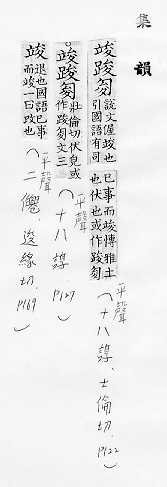 集韻
竣踆匔 說文偓竣也
引國語有司
已事而竣博雅土
也伏也或作踆匔
(平聲十八諄、士倫切、P122)
竣踆匔 壯倫切伏皃或
作踆匔文三
(平聲十八諄 P127)
竣 退也國語已事
而竣一曰改也
(平聲二僊 逡緣切. P169)